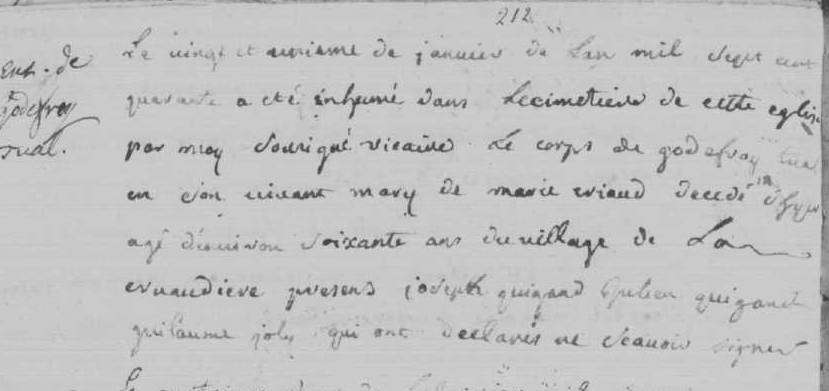 212
Le vingt et unieme de janvier de Lan mil sept cent
Ent. de
quarante a eté inhumé dans Lecimetiere de cette eglise
godefroy
par moy Sousigné vicaire Le corps de godefroy tual
tual.
en son vivant mary de marie eriaud decedé d'hyer
agé d'environ Soixante ans du village de La
ervaudiere presens joseph guigand Julien guigand
guilaume joly qui ont declarés ne scavoir signer